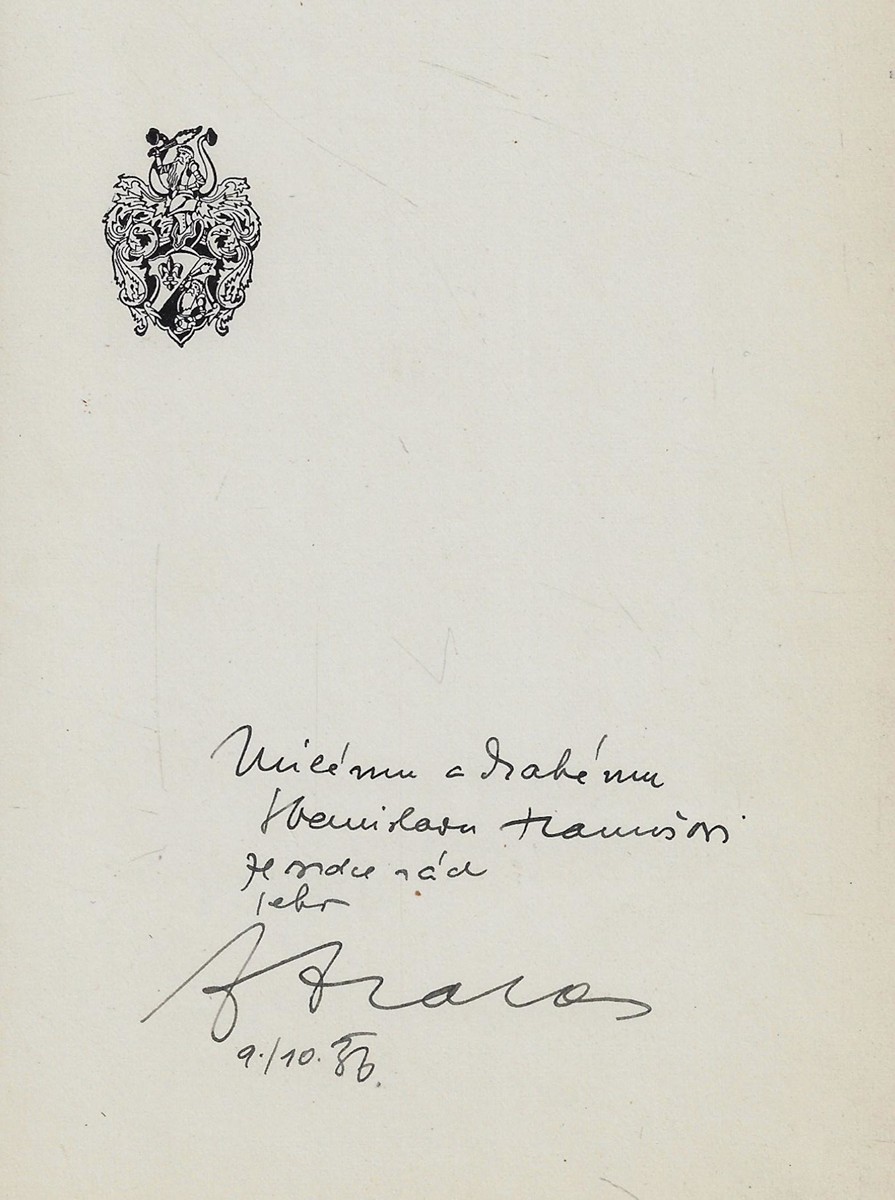 Milému a drahému
Stanislavu Hanušovi
ze srdce rád
9./10. 86.